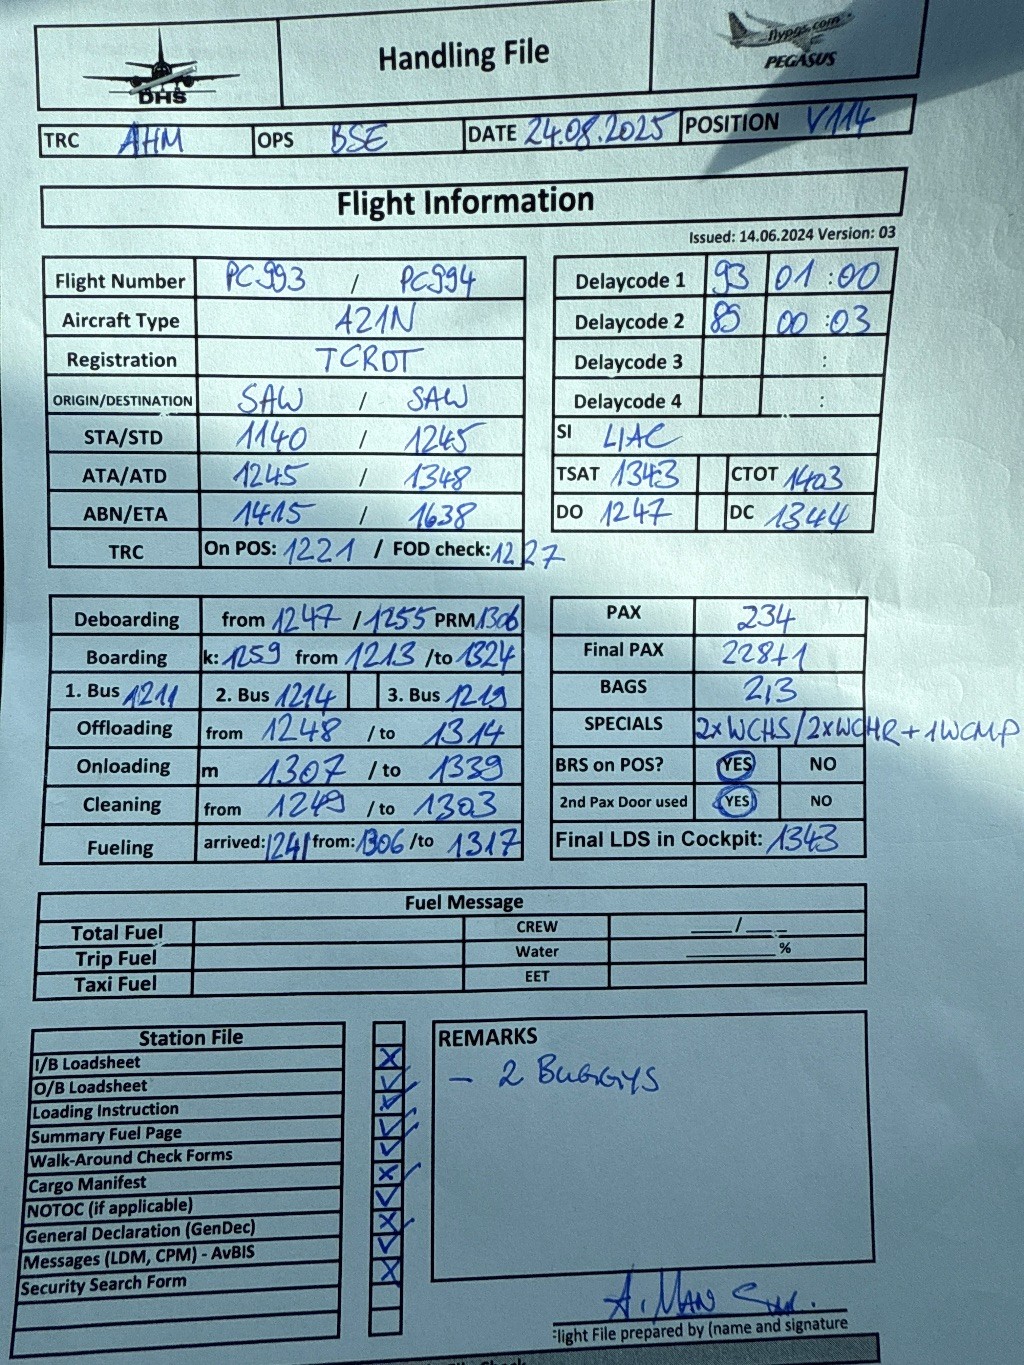 DHS
Handling File
flypgs.com
PEGASUS
TRC AHM OPS BSE DATE 24.08.2025 POSITION V114
Flight Information
Issued: 14.06.2024 Version: 03
Flight Number PC993 / PC994
Aircraft Type A21N
Registration TCRDT
ORIGIN/DESTINATION SAW / SAW
STA/STD 1140 / 1245
ATA/ATD 1245 / 1348
ABN/ETA 1415 / 1638
TRC On POS: 1221 / FOD check: 1227
Delaycode 1 93 01 : 00
Delaycode 2 89 00 : 03
Delaycode 3 :
Delaycode 4 :
SI LIAC
TSAT 1343 CTOT 1403
DO 1247 DC 1344
Deboarding from 1247 / 1255 PRM 1306
Boarding k: 1259 from 1213 /to 1324
1. Bus 1211 2. Bus 1214 3. Bus 1219
Offloading from 1248 / to 1314
Onloading m 1307 / to 1339
Cleaning from 1249 / to 1303
Fueling arrived: 1241 from: 1306 /to 1317
PAX 234
Final PAX 228+1
BAGS 2,3
SPECIALS 2xWCHS/2xWCHR+1WCMP
BRS on POS? YES NO
2nd Pax Door used YES NO
Final LDS in Cockpit: 1343
Fuel Message
Total Fuel CREW /
Trip Fuel Water %
Taxi Fuel EET
Station File
I/B Loadsheet
O/B Loadsheet
Loading Instruction
Summary Fuel Page
Walk-Around Check Forms
Cargo Manifest
NOTOC (if applicable)
General Declaration (GenDec)
Messages (LDM, CPM) - AvBIS
Security Search Form
REMARKS
- 2 BUGGYS
A. MAN
Flight File prepared by (name and signature
Check